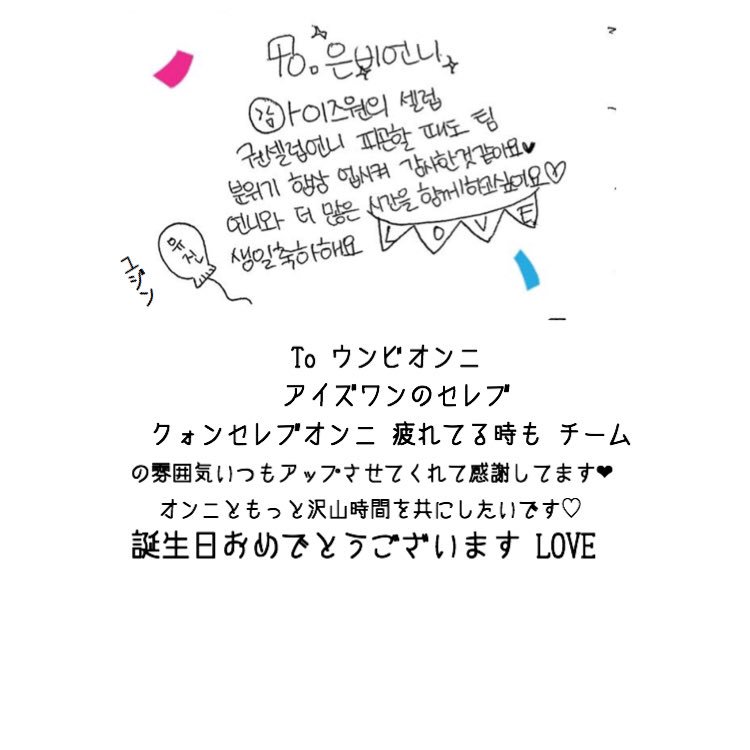 To. 은비언니
아이즈원의 셀럽
권셀럽언니 피곤할 때도 팀
분위기 항상 업시켜 감사한것같아요♥
언니와 더 많은 시간을 함께하고싶어요♡
생일축하해요 LOVE
유진
ユジン
To ウンビオンニ
アイズワンのセレブ
クォンセレブオンニ 疲れてる時も チーム
の雰囲気いつもアップさせてくれて感謝してます❤
オンニともっと沢山時間を共にしたいです♡
誕生日おめでとうございます LOVE